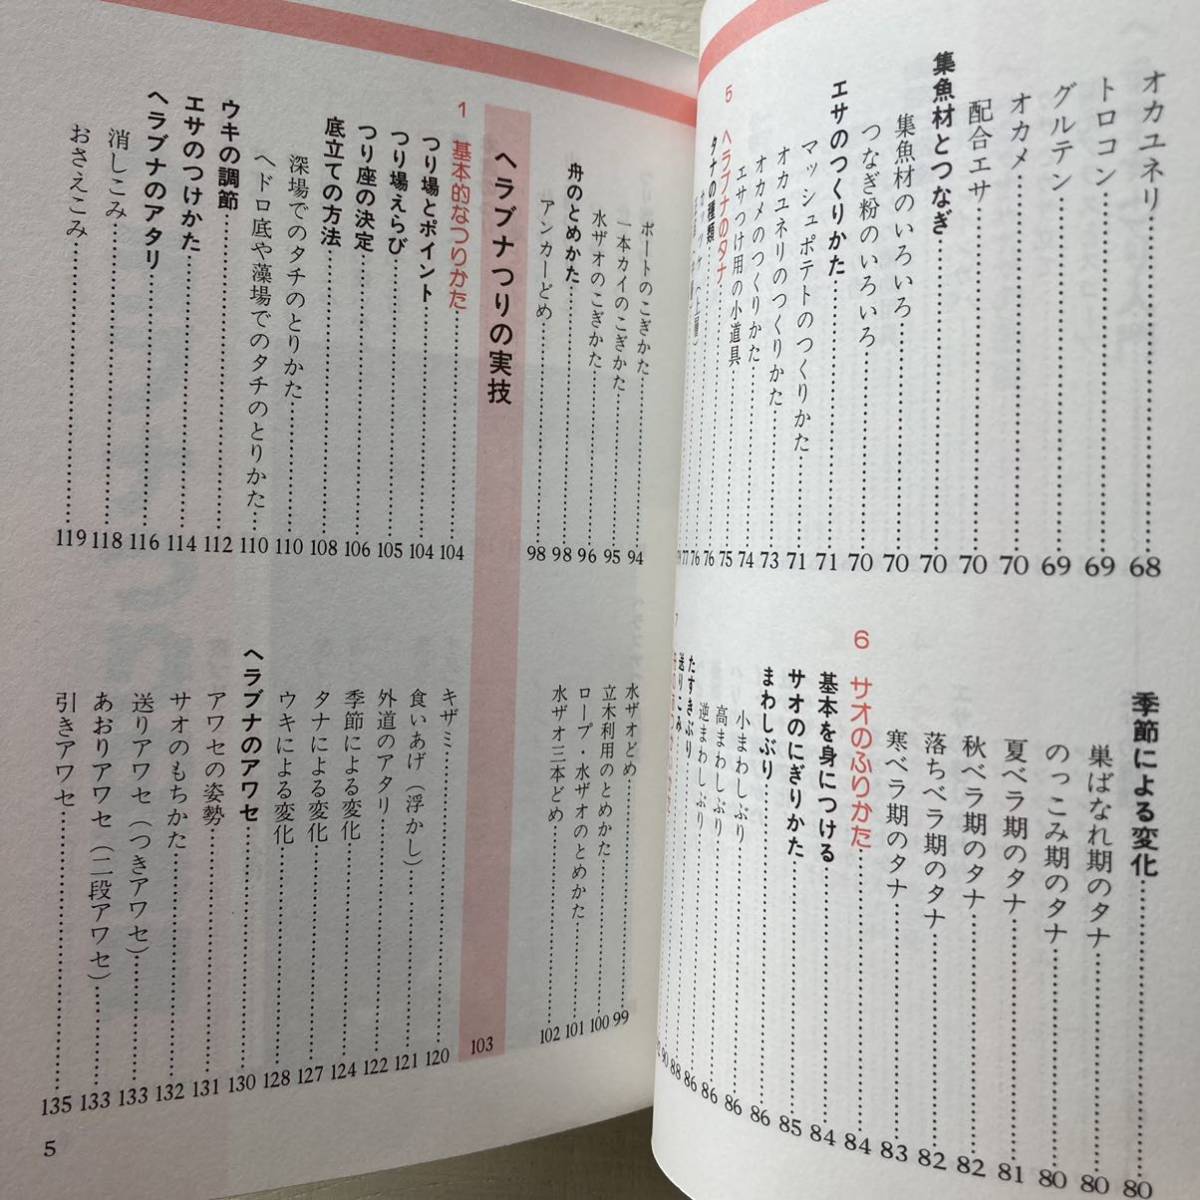 オカユネリ……68
トロコン……69
グルテン……69
オカメ……70
配合エサ……70
集魚材とつなぎ……70
集魚材のいろいろ……70
つなぎ粉のいろいろ……70
エサのつくりかた……71
マッシュポテトのつくりかた……71
オカユネリのつくりかた……73
オカメのつくりかた……74
エサつけ用の小道具……75
5 ヘラブナのタナ……76
タナの種類……76
季節による変化……80
巣ばなれ期のタナ……80
のっこみ期のタナ……80
夏ベラ期のタナ……81
秋ベラ期のタナ……82
落ちベラ期のタナ……82
寒ベラ期のタナ……83
6 サオのふりかた……84
基本を身につける……84
サオのにぎりかた……85
まわしぶり……86
小まわしぶり……86
高まわしぶり……86
逆まわしぶり……86
たすきぶり……88
送りこみ……90
ボートのこぎかた……94
一本カイのこぎかた……95
水ザオのこぎかた……96
舟のとめかた……98
アンカーどめ……98
水ザオどめ……99
立木利用のとめかた……100
ロープ・水ザオのとめかた……101
水ザオ三本どめ……102
ヘラブナつりの実技 103
1 基本的なつりかた……104
つり場とポイント……104
つり場えらび……105
つり座の決定……106
底立ての方法……108
深場でのタチのとりかた……110
ヘドロ底や藻場でのタチのとりかた……110
ウキの調節……112
エサのつけかた……114
ヘラブナのアタリ……116
消しこみ……118
おさえこみ……119
キザミ……120
食いあげ（浮かし）……121
外道のアタリ……122
季節による変化……124
タナによる変化……127
ウキによる変化……128
ヘラブナのアワセ……130
アワセの姿勢……131
サオのもちかた……132
送りアワセ（つきアワセ）……133
あおりアワセ（二段アワセ）……133
引きアワセ……135
5